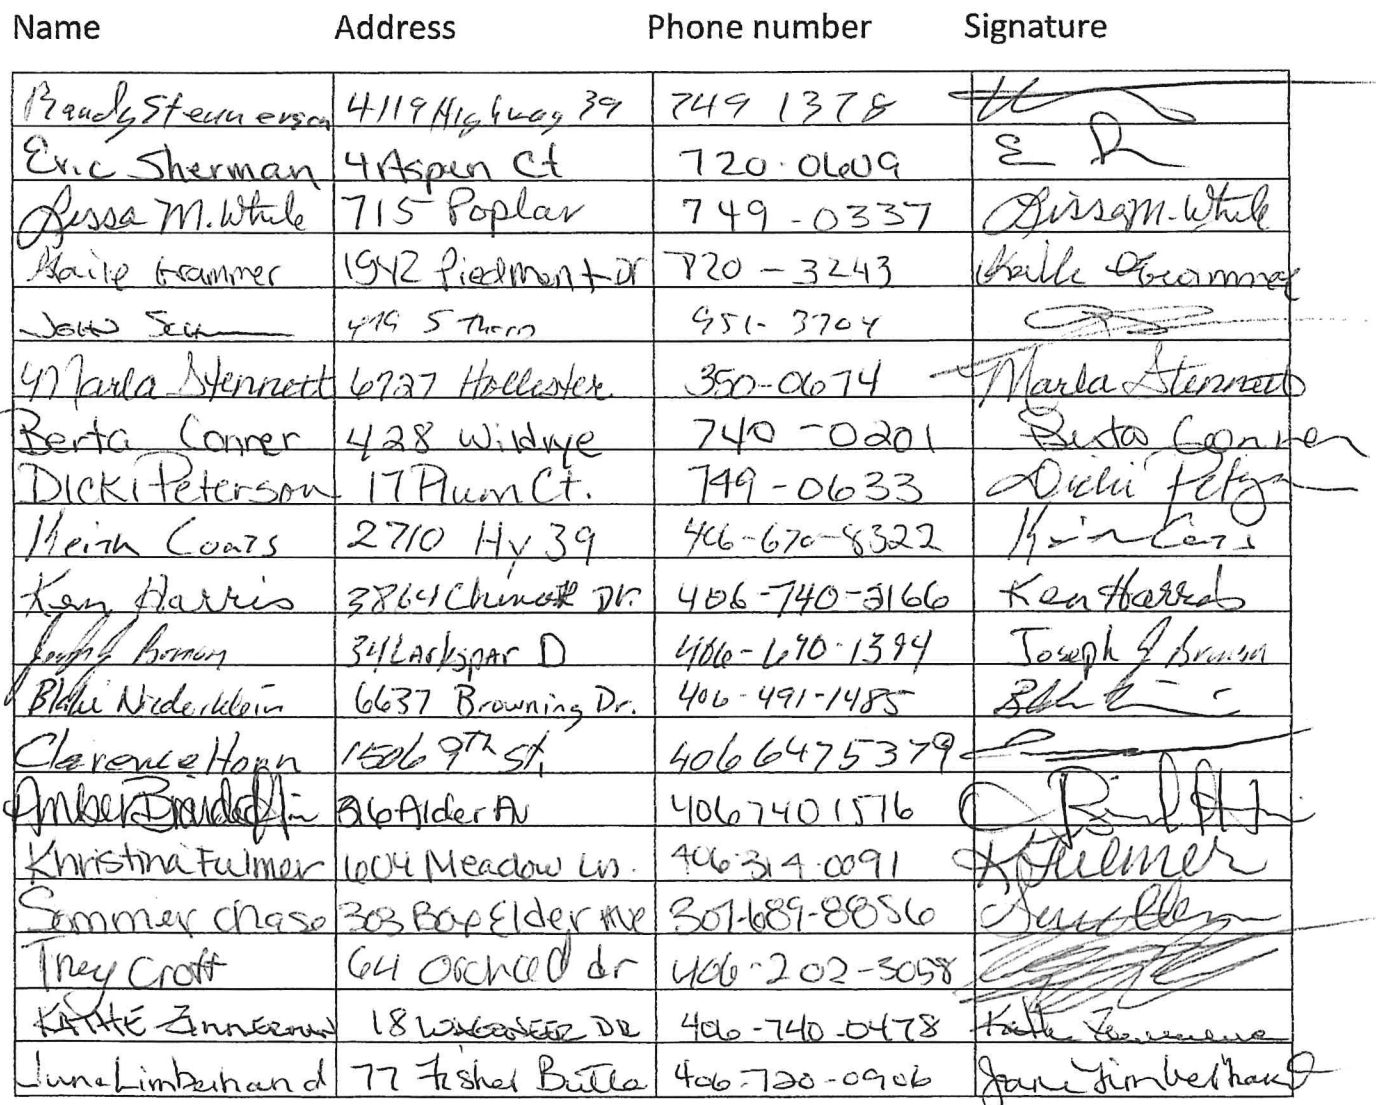 Name Address Phone number Signature
Randy Stevenerson 4119 Highway 39 749 1378
Eric Sherman 4 Aspen Ct 720-0609 E
Lissa M. White 715 Poplar 749-0337 Lissa M. White
Grammer 1942 Piedmont Dr 720-3243 Grammer
John 419 S 951-3704
Marla Stennett 6727 Hollister 350-0674 Marla Stennett
Berta Conner 428 Wildrye 740-0201 Berta Conner
Dicki Peterson 17 Plum Ct. 749-0633 Dicki
Keith Coats 2710 Hy 39 406-670-8322
Ken Harris 3864 Chinook Dr. 406-740-2166 Ken Harris
34 Larkspar D 406-690-1394 Joseph J
Blake Niederklein 6637 Browning Dr. 406-491-1485
Clarence Horn 1506 9th St, 406 647 5379
Amber 316 Alder Av 406 740 1576
Khristina Fulmer 604 Meadow Ln. 406-314-0091 K Fulmer
Sommer Chase 303 Box Elder Ave 307-689-8856
Trey Croft 64 Orchard dr 406-202-3058
KATHIE ZIMMERMAN 18 WAGONEER DR 406-740-0478
June Limberhand 77 Fisher Butte 406-720-0906 June Limberhand